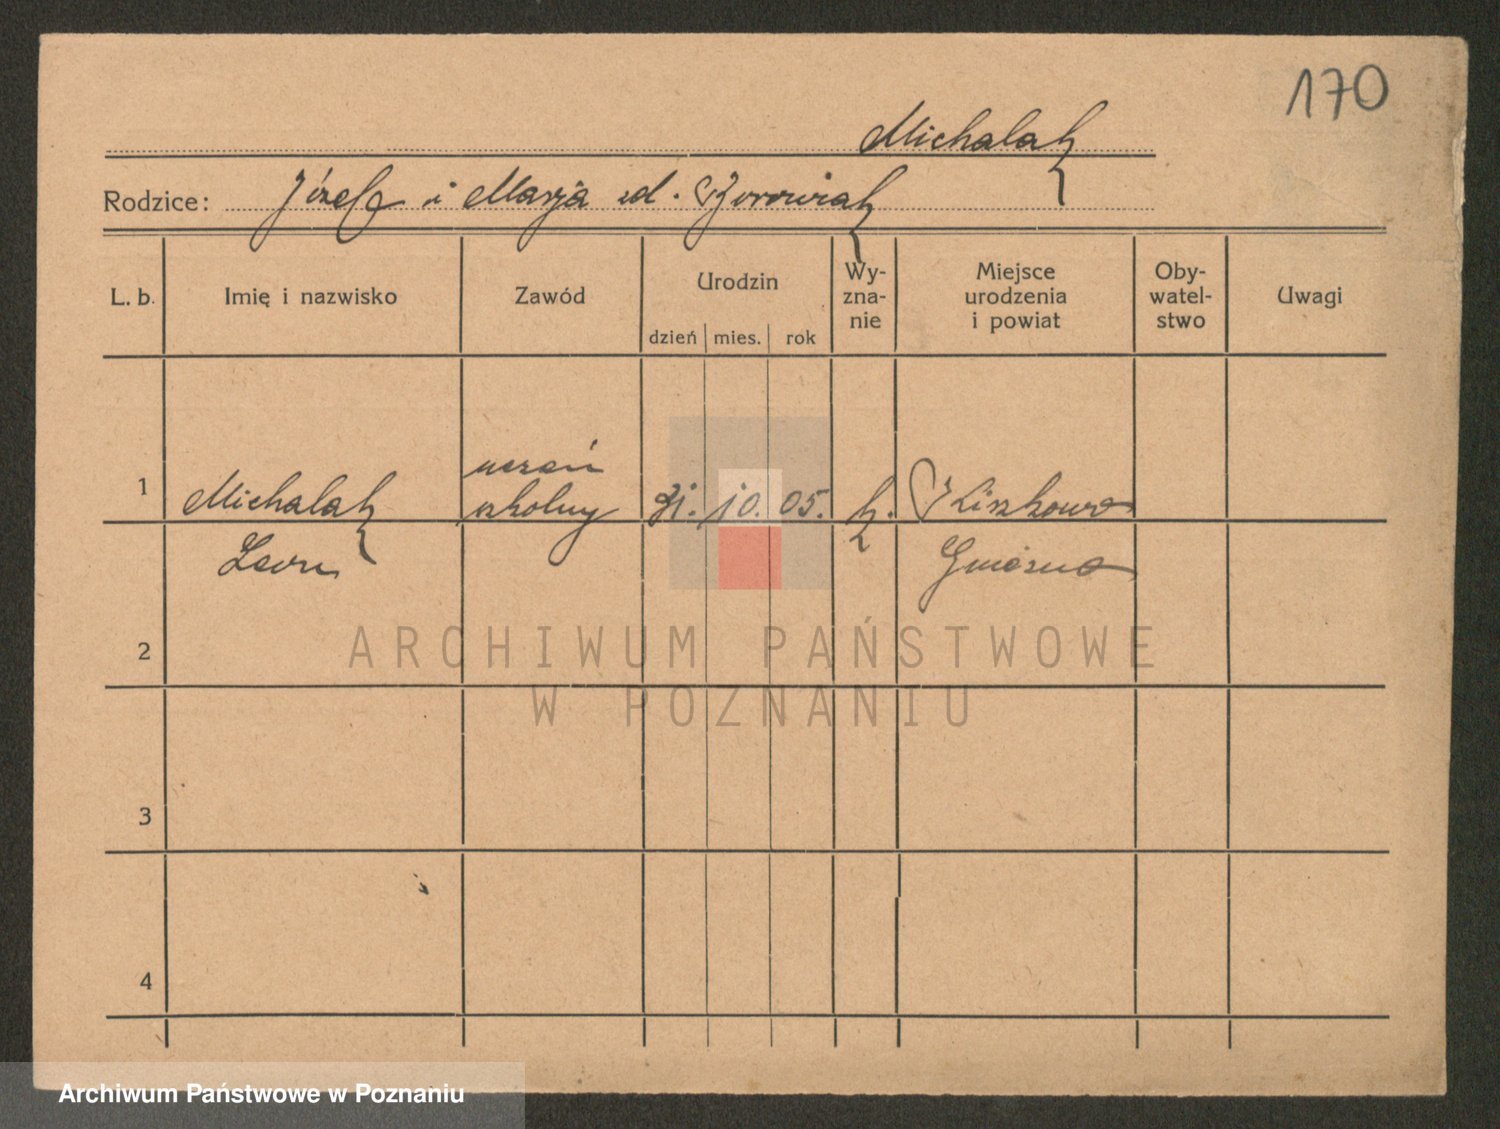 170
Michalak
Rodzice: Józef i Marja ud. Borowiak
L. b. Imię i nazwisko Zawód Urodzin dzień mies. rok Wy-
zna-
nie Miejsce
urodzenia
i powiat Oby-
watel-
stwo Uwagi
1 Michalak uczeń
szkolny 31. 10. 05. k. Kiszkowo
Leon Gniezno
2
3
4
ARCHIWUM PAŃSTWOWE
W POZNANIU
Archiwum Państwowe w Poznaniu